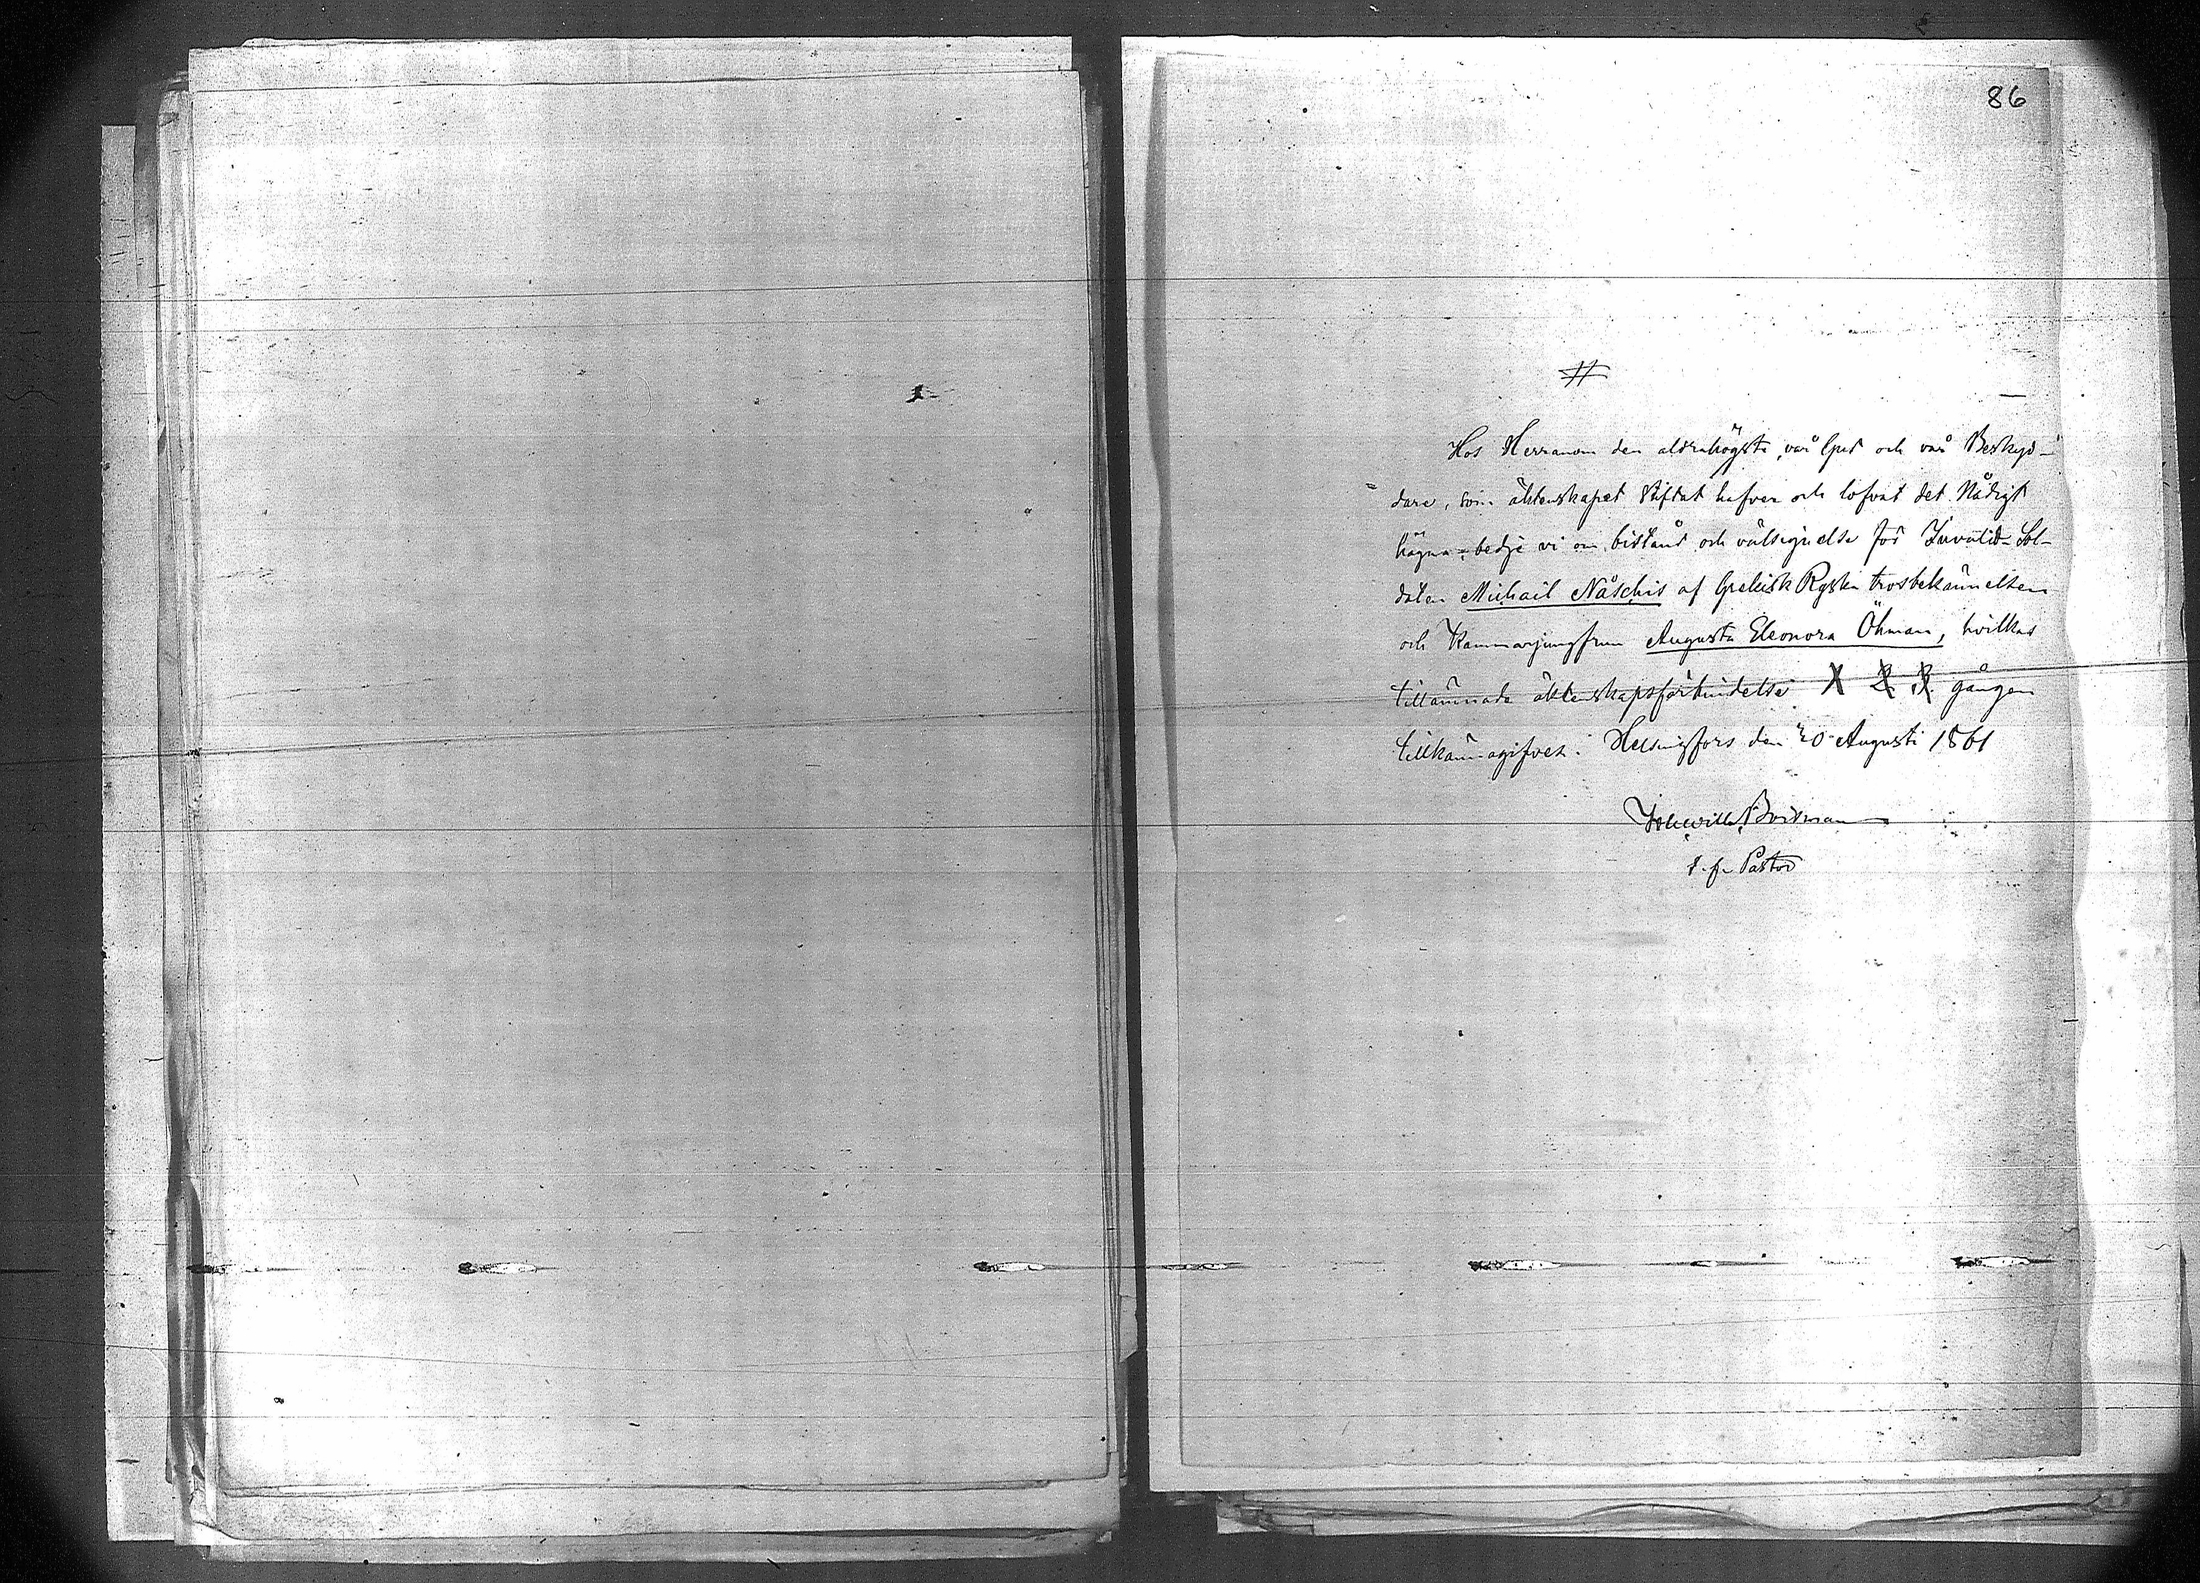 86
#
Hos Herranom den aldrahögste, vår Gud och vår Beskyd-
dare, som äktenskapet stiftat hafver och lofvat det Nådigt
hägna - bedje vi om bistånd och välsignelse för Invalid-Sol-
daten Michail Näschis af Grekisk Ryska trosbekännelsen
och Kammarjungfrun Augusta Eleonora Öhman, hvilkas
tillämnade äktenskapsförbindelse 1 2 3 gången
tillkännagifves. Helsingfors den 20 Augusti 1861
Boisman
t. f. Pastor